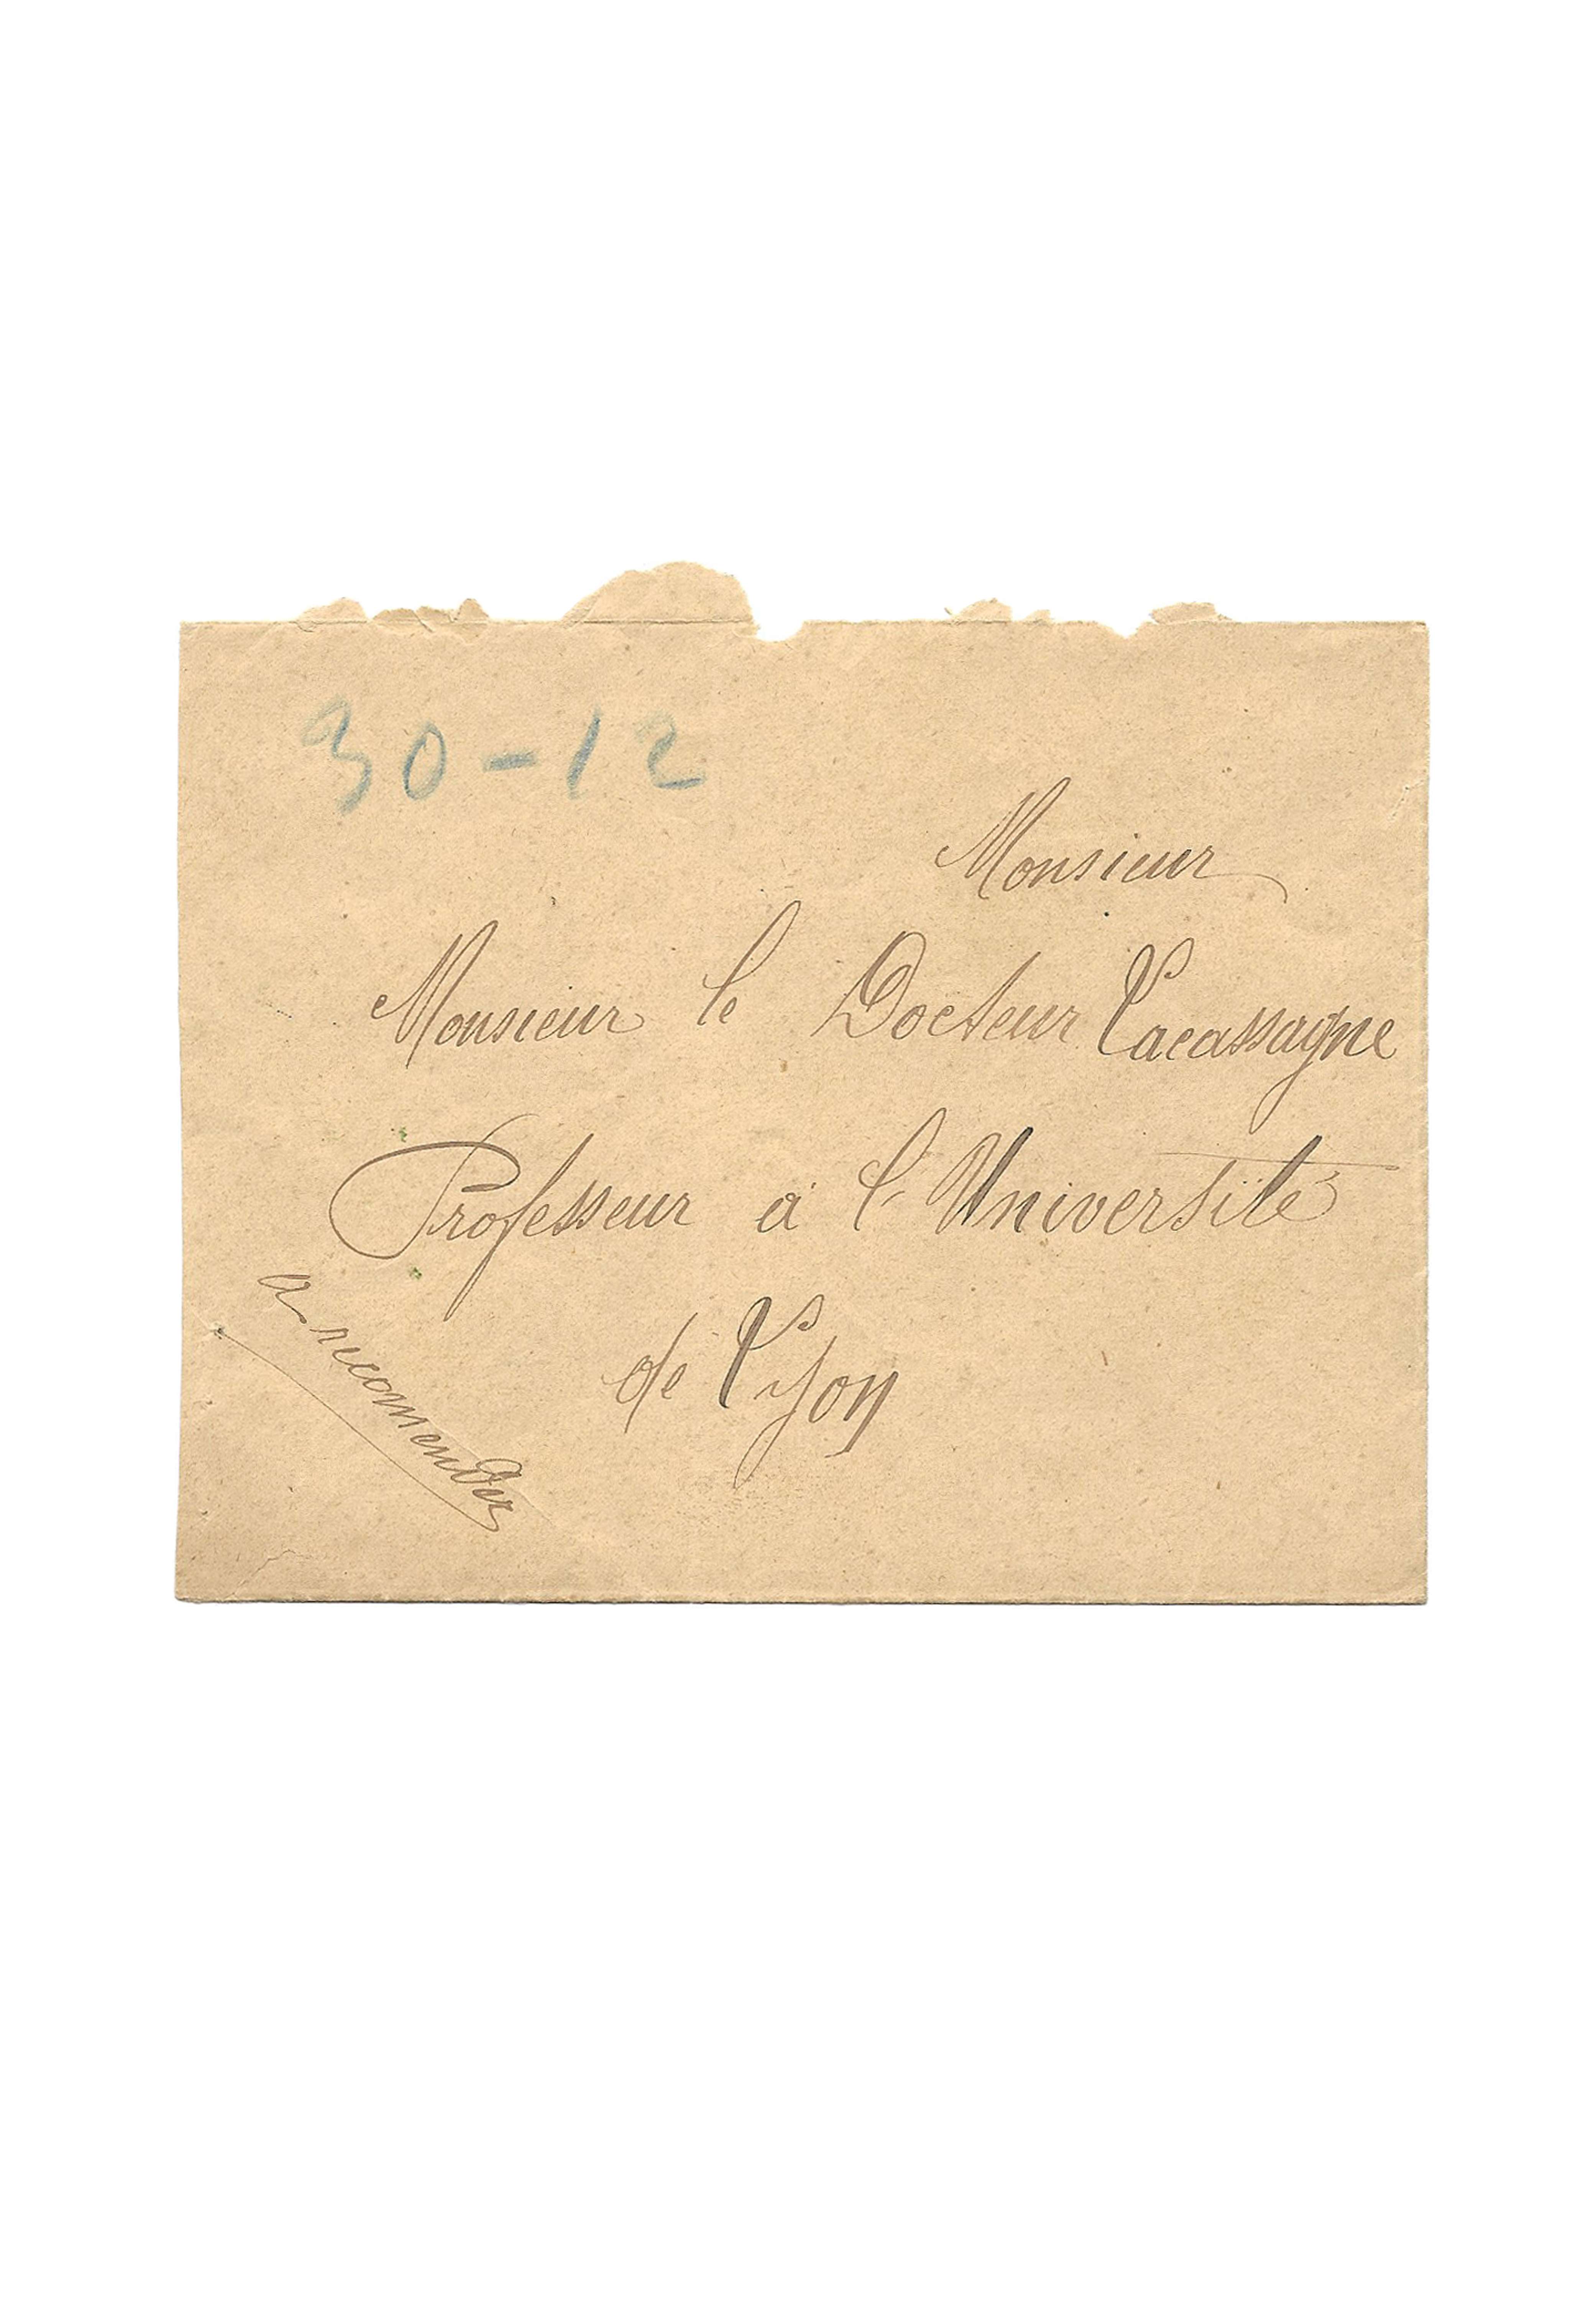 30-12
Monsieur
Monsieur le Docteur Lacassagne
Professeur a l'Université
de Lyon
a recomender